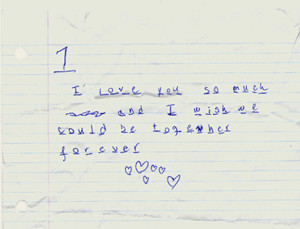 1
I love you so much
and I wish we
could be together
forever